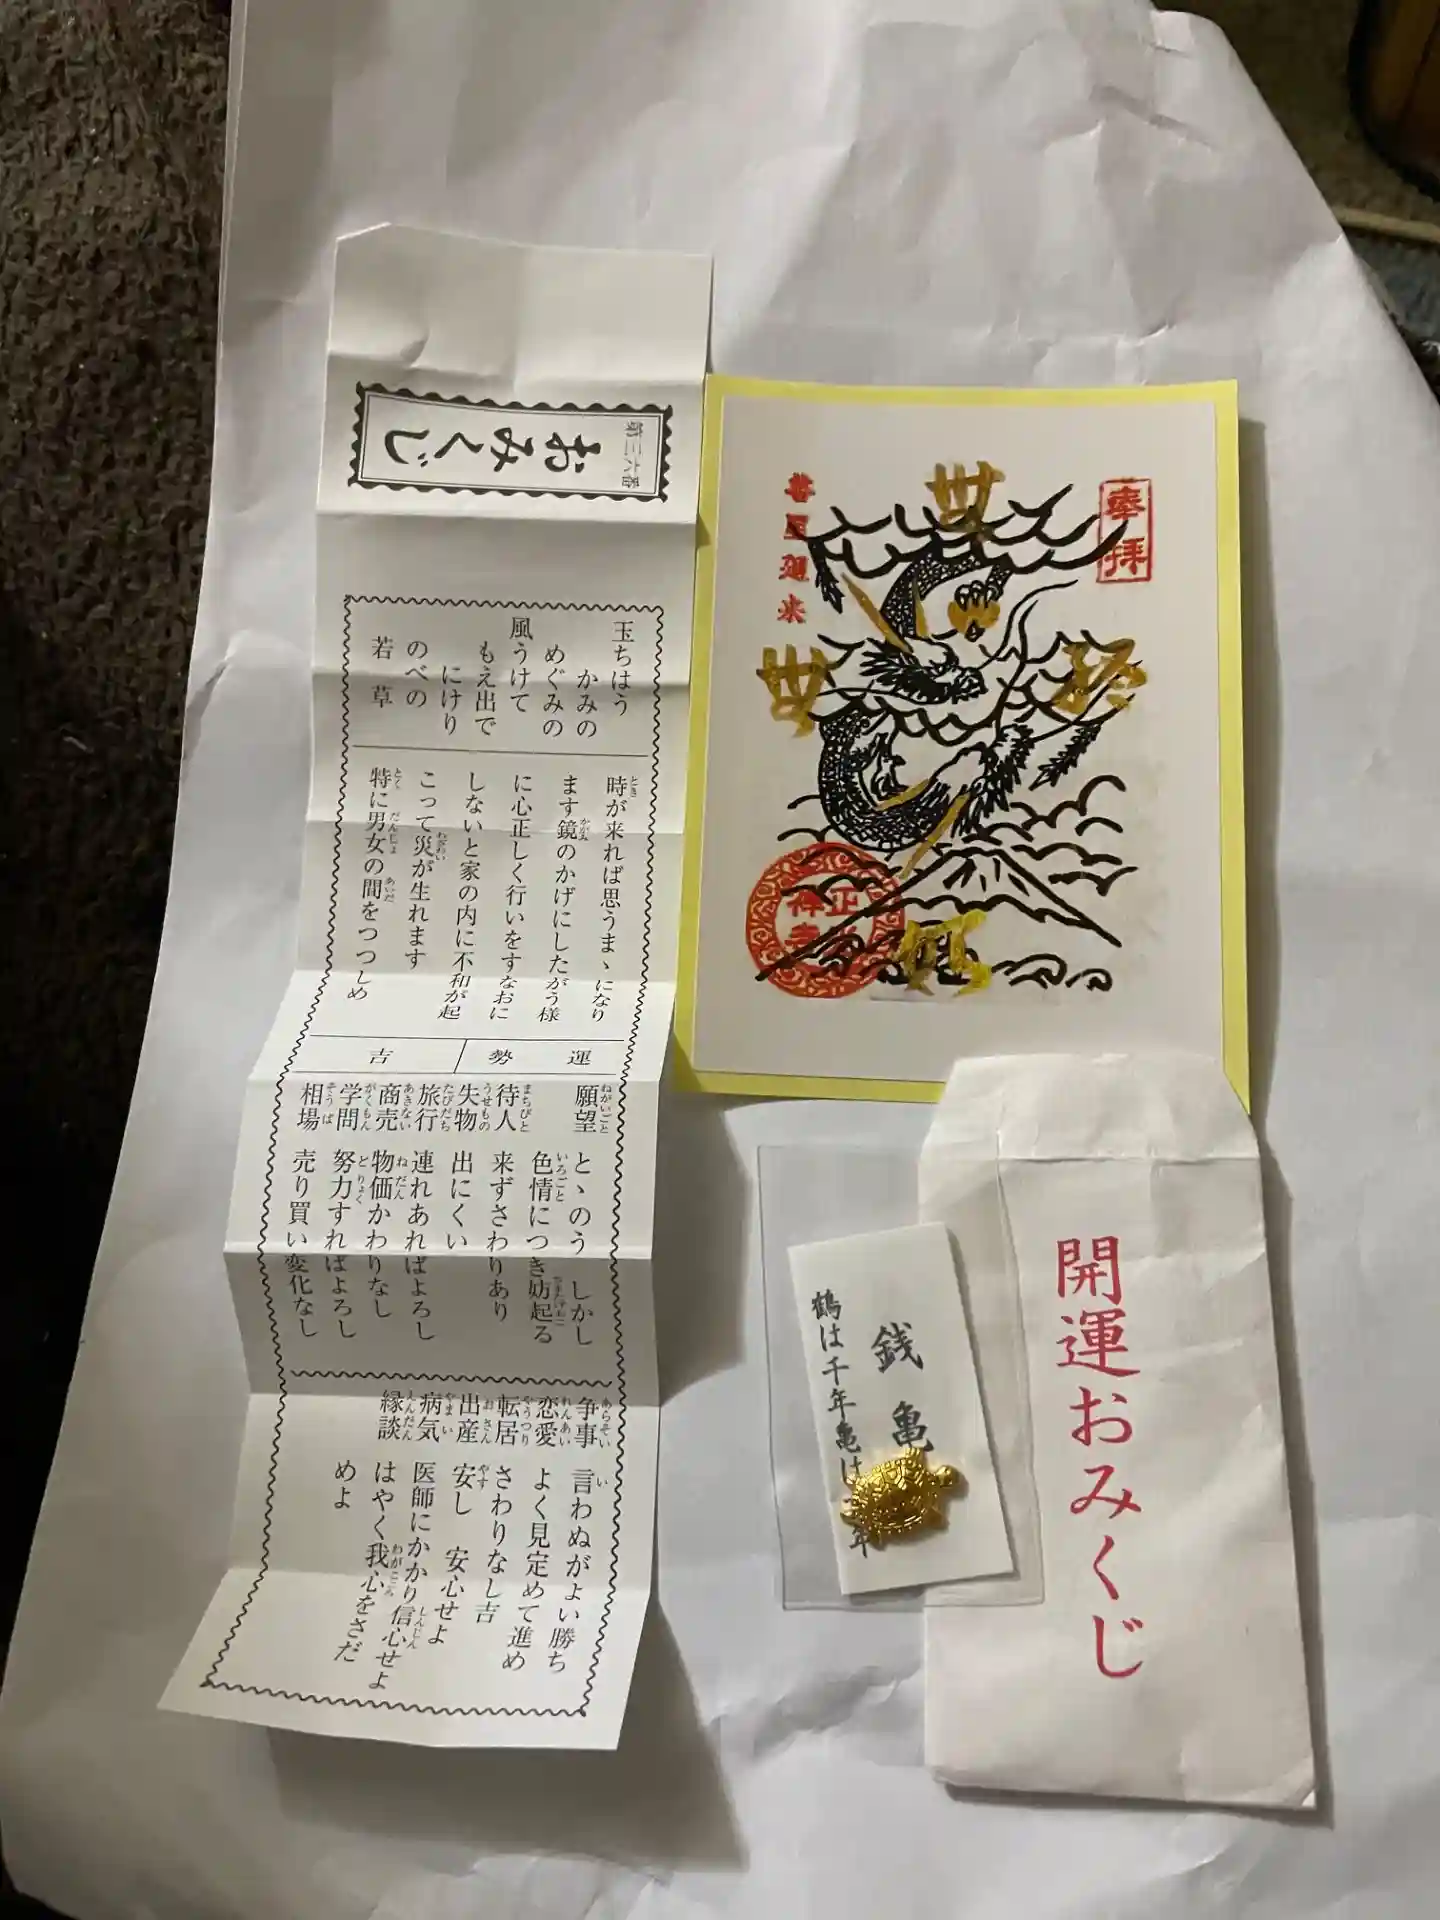 第三六番
おみくじ
玉ちはう
かみの
めぐみの
風うけて
もえ出で
にけり
のべの
若草
時が来れば思うまゝになり
ます鏡のかげにしたがう様
に心正しく行いをすなおに
しないと家の内に不和が起
こって災が生れます
特に男女の間をつつしめ
運勢 吉
願望 とゝのう しかし
色情につき妨起る
待人 来ずさわりあり
失物 出にくい
旅行 連れあればよろし
商売 物価かわりなし
学問 努力すればよろし
相場 売り買い変化なし
争事 言わぬがよい勝ち
恋愛 よく見定めて進め
転居 さわりなし吉
出産 安し 安心せよ
病気 医師にかかり信心せよ
縁談 はやく我心をさだ
めよ
奉拝
開運おみくじ
銭亀
鶴は千年亀は
年